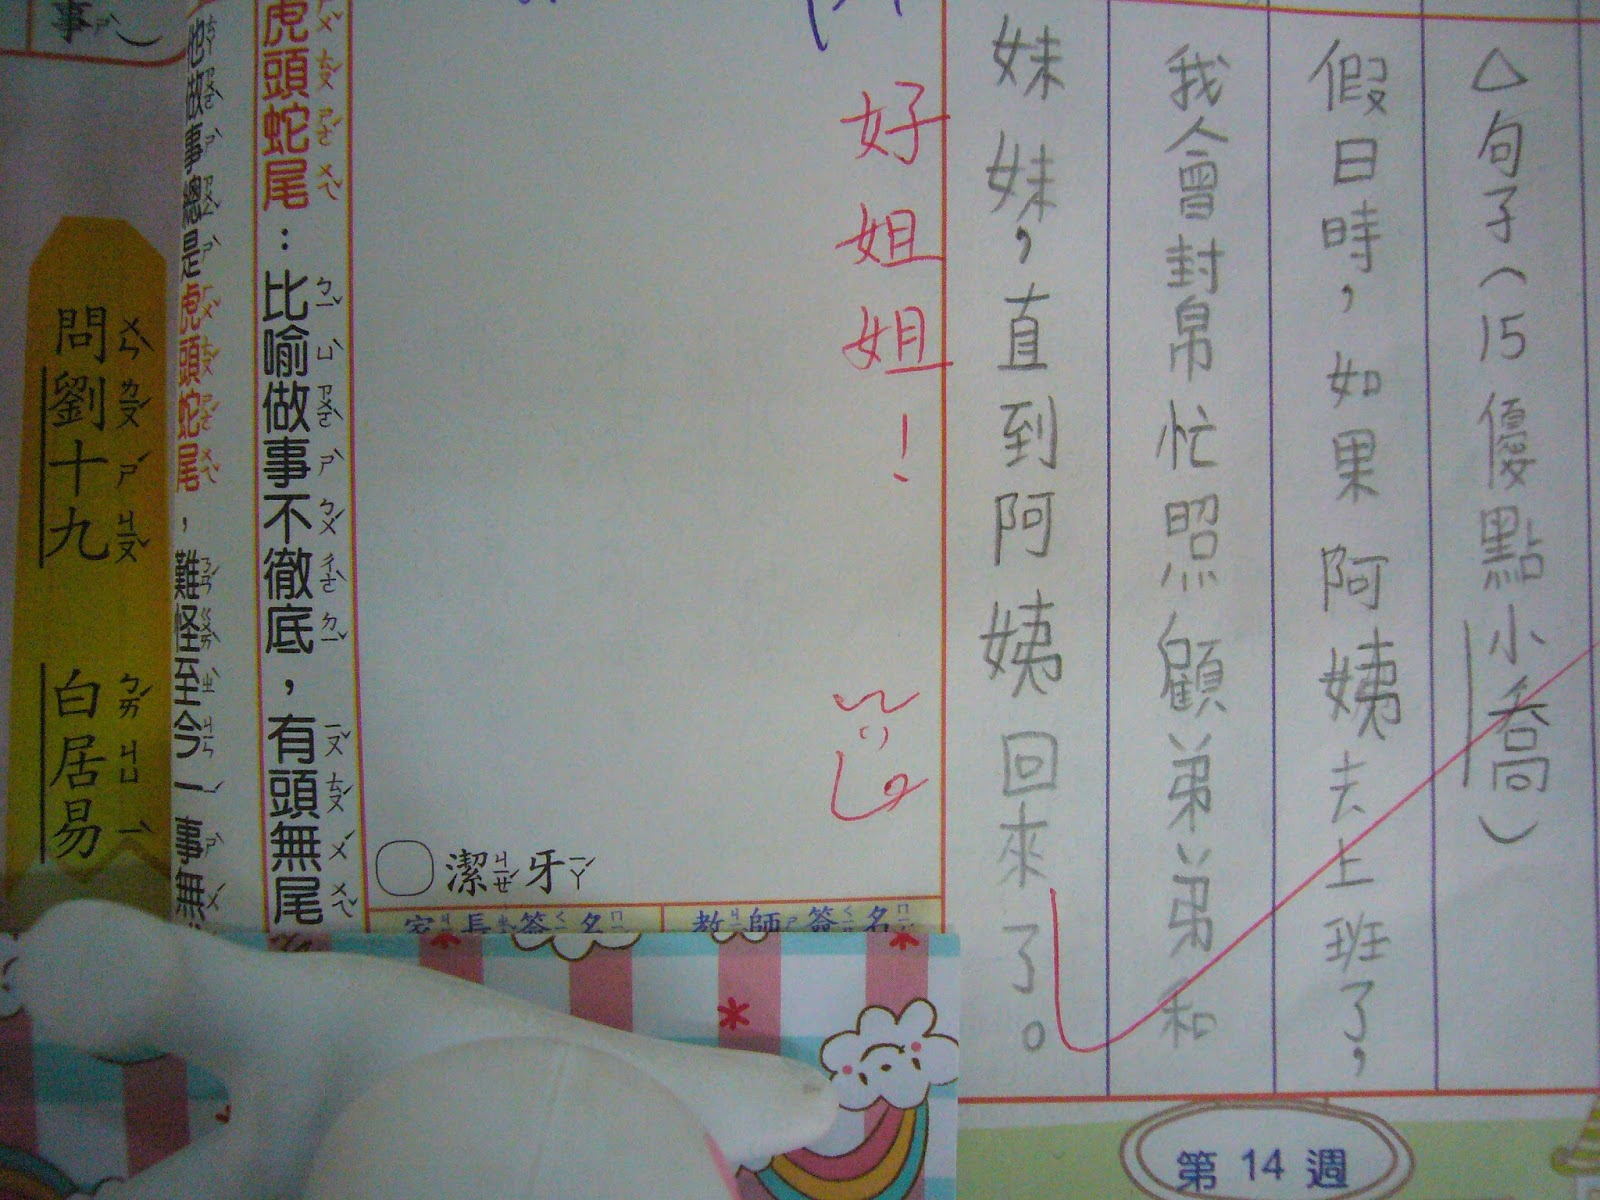 △句子(15優點小喬)
假日時,如果阿姨去上班了,
我會封帛忙照顧弟弟和
妹妹,直到阿姨回來了。
好姐姐!
潔ㄐㄧㄝˊ牙ㄧㄚˊ
家長簽名
教師簽名
虎頭蛇尾:比喻做事不徹底,有頭無尾
他做事總是虎頭蛇尾,難怪至今一事無
事
問劉十九 白居易
第 14 週